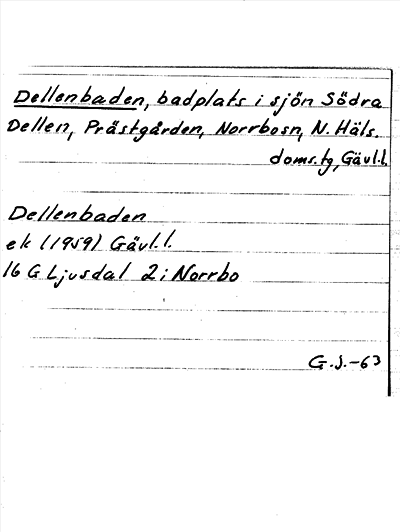 Dellenbaden, badplats i sjön Södra
Dellen, Prästgården, Norrbosn, N. Häls.
doms.tg, Gävl.l.
Dellenbaden
ek (1959) Gävl.l.
16 G Ljusdal 2 i Norrbo
G.J.-63